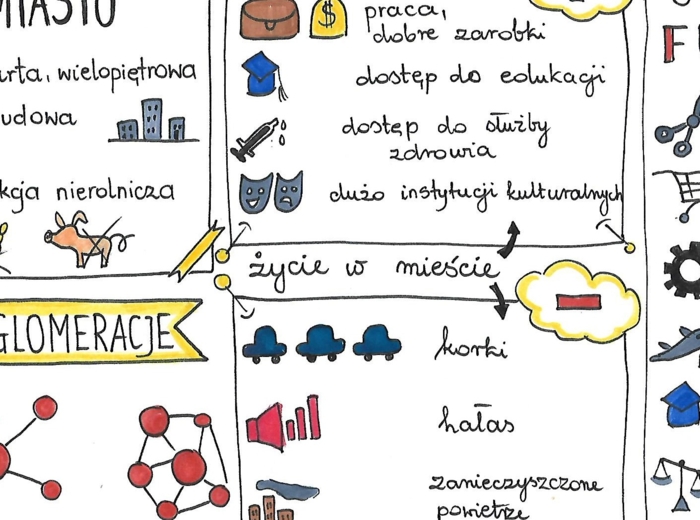 MIASTO
wielopiętrowa
nierolnicza
GLOMERACJE
praca,
dobre zarobki
dostęp do edukacji
dostęp do służby
zdrowia
dużo instytucji kulturalnych
życie w mieście
korki
hałas
zanieczyszczone
powietrze